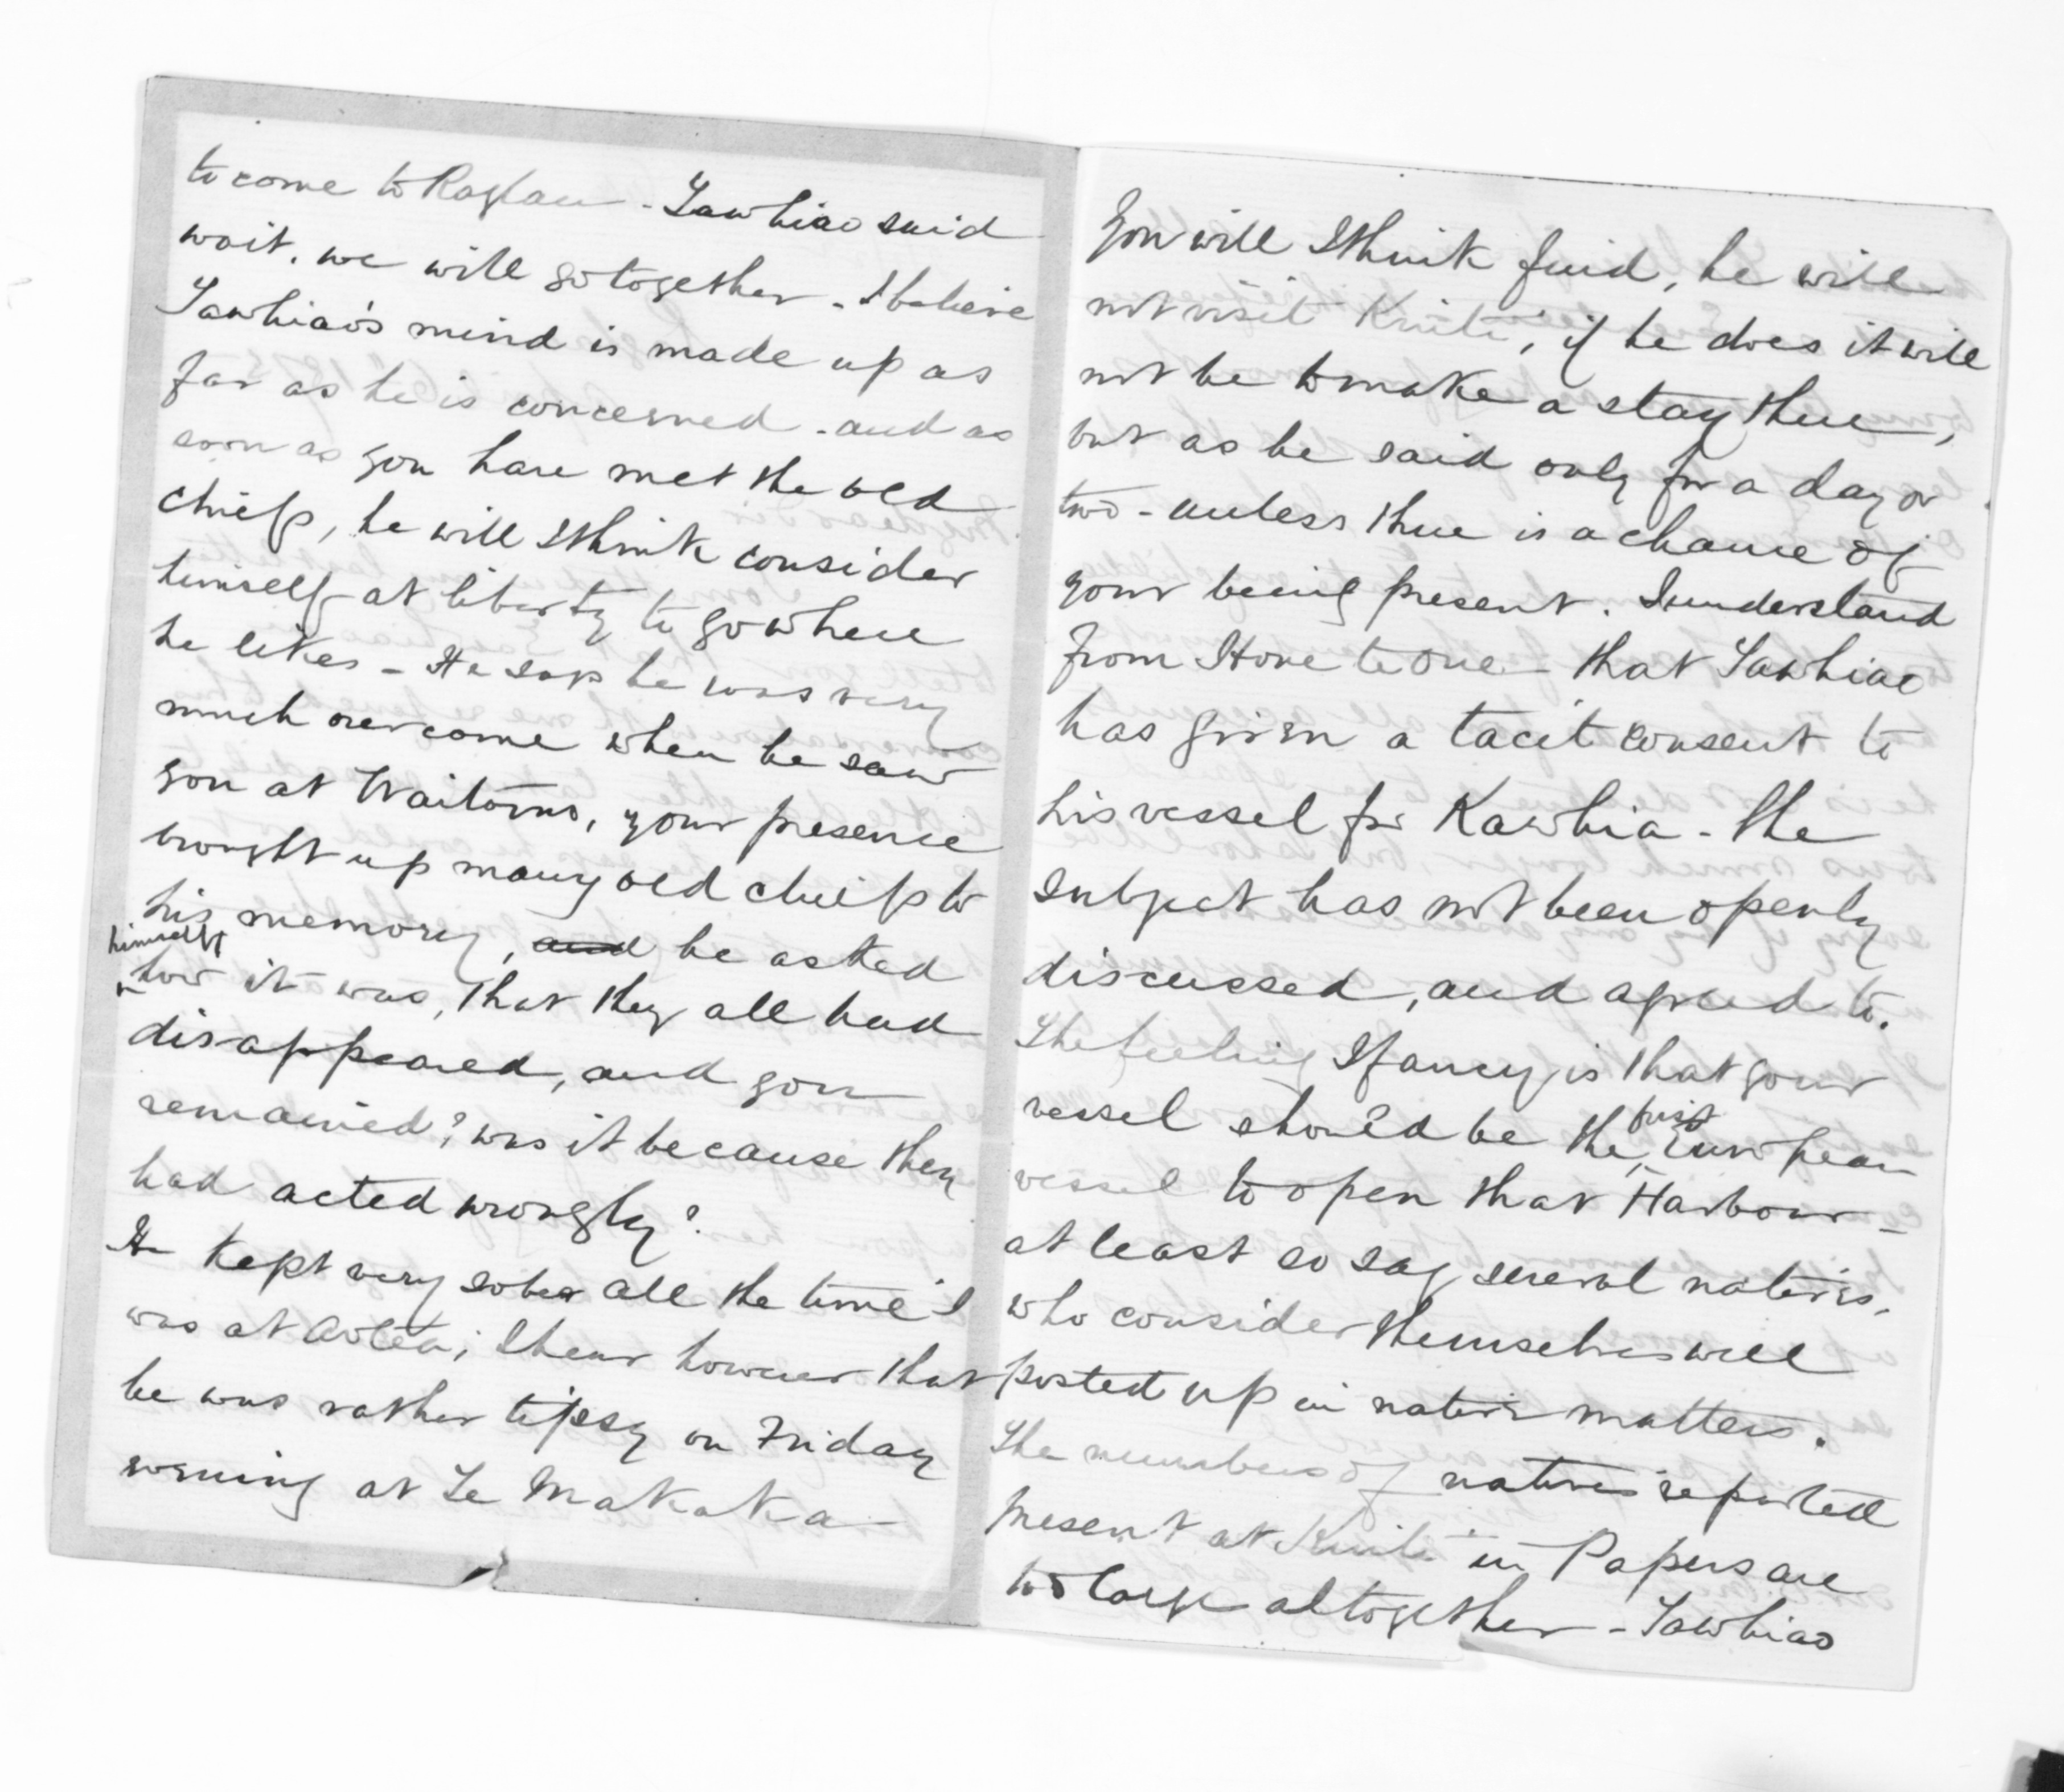 to come to Raglan - Tawhiao said
wait, we will go together - I believe
Tawhiao's mind is made up as
far as he is concerned - and as
soon as you have met the old
chiefs, he will I think consider
himself at liberty to go where
he likes - He says he was very
much overcome when he saw
you at Waitomo, your presence
brought up many old chiefs to
his memory, and he asked
himself
how it was, that they all had
disappeared, and you
remained? was it because they
had acted wrongly?
He kept very sober all the time I
was at Aotea; I hear however that
he was rather tipsy on Friday
evening at Te Makaka
You will I think find, he will
not visit Kuiti, if he does it will
not be to make a stay there,
but as he said only for a day or
two - unless there is a chance of
your being present. I understand
from Hone te One - that Tawhiao
has given a tacit consent to
his vessel for Kawhia - the
subject has not been openly
discussed, and agreed to.
The feeling I fancy is that your
vessel should be the first European
vessel to open that Harbour -
at least so say several natives,
who consider themselves well
posted up in native matters.
The numbers of natives reported
present at Kuiti in Papers are
too large altogether - Tawhiao